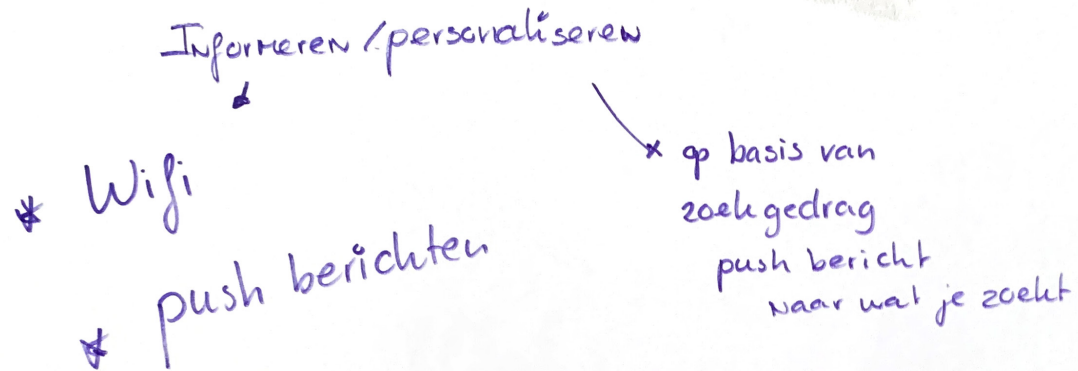 Informeren / personaliseren
* Wifi
* push berichten
x op basis van
zoekgedrag
push bericht
naar wat je zoekt